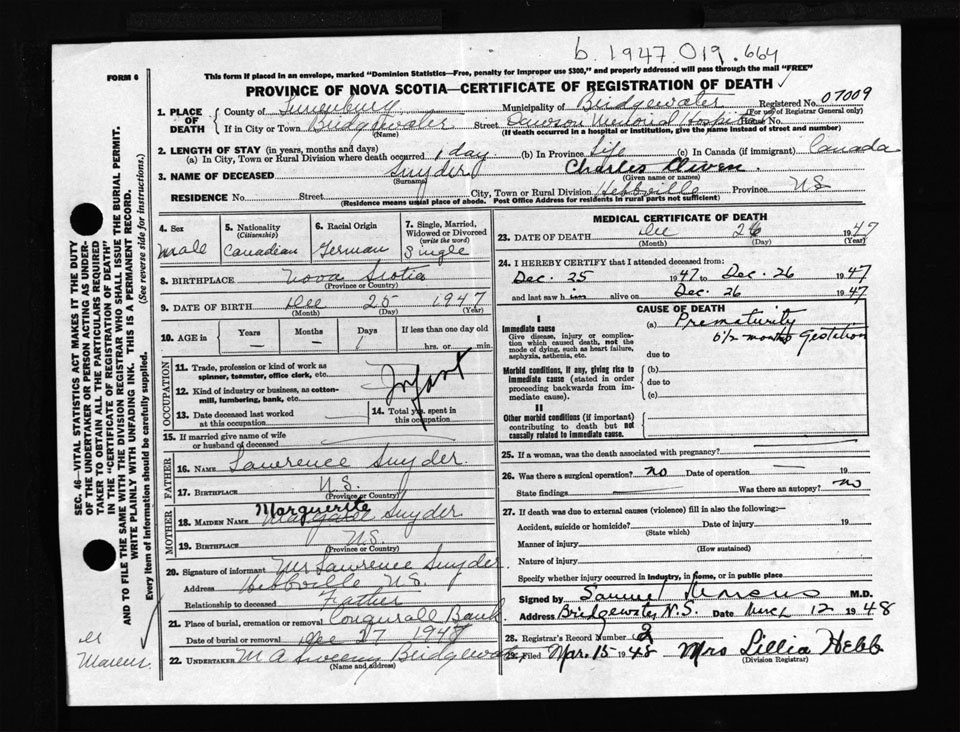 b. 1947.019.664
FORM 6
This form if placed in an envelope, marked "Dominion Statistics—Free, penalty for improper use $300," and properly addressed will pass through the mail "FREE"
PROVINCE OF NOVA SCOTIA—CERTIFICATE OF REGISTRATION OF DEATH
1. PLACE OF DEATH County of Lunenburg Municipality of Bridgewater Registered No. 07009
(For use of Registrar General only)
If in City or Town Bridgewater Street Dawson Memorial Hospital House No.
(Name) (If death occurred in a hospital or institution, give the name instead of street and number)
2. LENGTH OF STAY (in years, months and days)
(a) In City, Town or Rural Division where death occurred 1 day (b) In Province Life (c) In Canada (if immigrant) Canada
3. NAME OF DECEASED Snyder Charles Owen.
(Surname) (Given name or names)
RESIDENCE No. Street City, Town or Rural Division Hebbville Province N.S.
(Residence means usual place of abode. Post Office Address for residents in rural parts not sufficient)
4. Sex Male
5. Nationality (Citizenship) Canadian
6. Racial Origin German
7. Single, Married, Widowed or Divorced (write the word) Single
8. BIRTHPLACE Nova Scotia
(Province or Country)
9. DATE OF BIRTH Dec 25 1947
(Month) (Day) (Year)
10. AGE in Years — Months — Days 1 If less than one day old hrs. or min.
OCCUPATION
11. Trade, profession or kind of work as spinner, teamster, office clerk, etc.
Infant
12. Kind of industry or business, as cotton-mill, lumbering, bank, etc.
13. Date deceased last worked at this occupation
14. Total yrs. spent in this occupation
15. If married give name of wife or husband of deceased
FATHER
16. NAME Lawrence Snyder.
17. BIRTHPLACE N.S.
(Province or Country)
MOTHER
18. MAIDEN NAME Marguerite Margaret Snyder
19. BIRTHPLACE N.S.
(Province or Country)
20. Signature of informant Mr Lawrence Snyder.
Address Hebbville N.S.
Relationship to deceased Father
21. Place of burial, cremation or removal Conquerall Bank
Date of burial or removal Dec 27 1947
22. UNDERTAKER M A Sweeny Bridgewater
(Name and address)
MEDICAL CERTIFICATE OF DEATH
23. DATE OF DEATH Dec 26 1947
(Month) (Day) (Year)
24. I HEREBY CERTIFY that I attended deceased from:
Dec. 25 1947 to Dec. 26 1947
and last saw him alive on Dec. 26 1947
CAUSE OF DEATH
I
Immediate cause
Give disease, injury or complication which caused death, not the mode of dying, such as heart failure, asphyxia, asthenia, etc.
(a) Prematurity
6½ months Gestation
due to
Morbid conditions, if any, giving rise to immediate cause (stated in order proceeding backwards from immediate cause).
(b)
due to
(c)
II
Other morbid conditions (if important) contributing to death but not causally related to immediate cause.
25. If a woman, was the death associated with pregnancy?
26. Was there a surgical operation? no Date of operation — 19
State findings Was there an autopsy? no
27. If death was due to external causes (violence) fill in also the following:—
Accident, suicide or homicide? Date of injury 19
(State which)
Manner of injury
(How sustained)
Nature of injury
Specify whether injury occurred in industry, in home, or in public place
Signed by Samuel Marcus M.D.
Address Bridgewater, N.S. Date March 12 1948
28. Registrar's Record Number 2
29. Filed Mar. 15 1948 Mrs Lillia Hebb
(Division Registrar)
SEC. 46—VITAL STATISTICS ACT MAKES IT THE DUTY
OF THE UNDERTAKER OR PERSON ACTING AS UNDER-
TAKER TO OBTAIN ALL THE PARTICULARS REQUIRED
IN THE "CERTIFICATE OF REGISTRATION OF DEATH"
AND TO FILE THE SAME WITH THE DIVISION REGISTRAR WHO SHALL ISSUE THE BURIAL PERMIT.
WRITE PLAINLY WITH UNFADING INK. THIS IS A PERMANENT RECORD.
Every item of information should be carefully supplied. (See reverse side for instructions.)
Dr
Marcus.